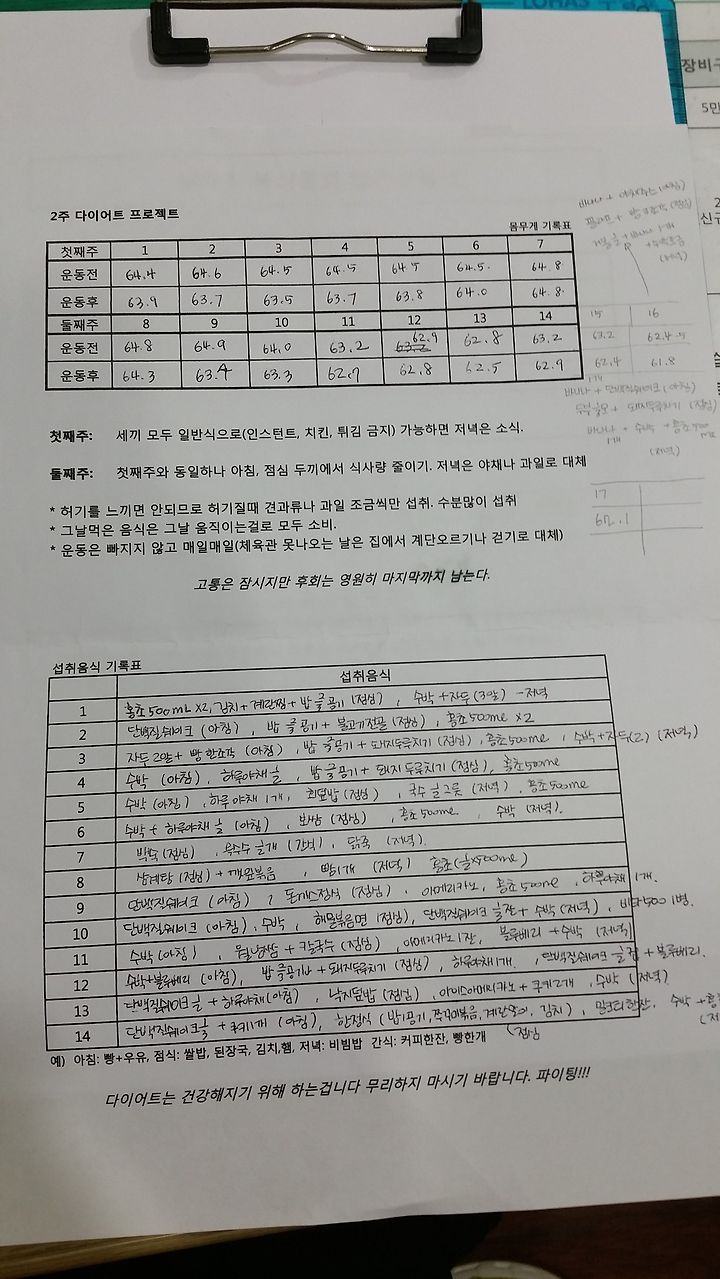 LOHAS
장비구
5만
신규
2주 다이어트 프로젝트
몸무게 기록표
첫째주 1 2 3 4 5 6 7
운동전 64.4 64.6 64.5 64.5 64.5 64.5 64.8
운동후 63.9 63.7 63.5 63.7 63.8 64.0 64.8
둘째주 8 9 10 11 12 13 14
운동전 64.8 64.9 64.0 63.2 62.9 62.8 63.2
운동후 64.3 63.4 63.3 62.7 62.8 62.5 62.9
15 16
63.2 62.4
62.4 61.8
바나나 + 단백질쉐이크 (아침)
돼지두루치기 (점심)
바나나 + 수박 + 홍초500
(저녁)
17
62.1
첫째주: 세끼 모두 일반식으로(인스턴트, 치킨, 튀김 금지) 가능하면 저녁은 소식.
둘째주: 첫째주와 동일하나 아침, 점심 두끼에서 식사량 줄이기. 저녁은 야채나 과일로 대체
* 허기를 느끼면 안되므로 허기질때 견과류나 과일 조금씩만 섭취. 수분많이 섭취
* 그날먹은 음식은 그날 움직이는걸로 모두 소비.
* 운동은 빠지지 않고 매일매일(체육관 못나오는 날은 집에서 계단오르기나 걷기로 대체)
고통은 잠시지만 후회는 영원히 마지막까지 남는다.
섭취음식 기록표
섭취음식
1 홍초500mL x2, 김치+계란찜+밥 공기 (점심), 수박+자두(3알) - 저녁
2 단백질쉐이크 (아침), 밥 공기 + 불고기전골 (점심), 홍초500ml x2
3 자두2알 + 빵한조각 (아침), 밥 공기 + 돼지두루치기 (점심), 홍초500ml, 수박+자두(2) (저녁)
4 수박 (아침), 하루야채, 밥 공기 + 돼지두루치기 (점심), 홍초500ml
5 수박 (아침), 하루야채 1개, 회덮밥 (점심), 국수 그릇 (저녁), 홍초500ml
6 수박 + 하루야채 (아침), 보쌈 (점심), 홍초500ml, 수박 (저녁).
7 백숙 (점심), 옥수수 개 (간식), 닭죽 (저녁).
8 삼계탕 (점심) + 볶음, 빵1개 (저녁) 홍초
9 단백질쉐이크 (아침), 돈까스정식 (점심), 아메리카노, 홍초500ml, 하루야채 1개.
10 단백질쉐이크 (아침), 수박, 해물볶음면 (점심), 단백질쉐이크 + 수박 (저녁), 비타500 1병.
11 수박 (아침), 월남쌈 + 칼국수 (점심), 아메리카노 1잔, 블루베리 + 수박 (저녁)
12 수박+블루베리 (아침), 밥 공기 + 돼지두루치기 (점심), 하루야채1개, 단백질쉐이크 + 블루베리.
13 단백질쉐이크 + 하루야채(아침), 낙지덮밥 (점심), 아이스아메리카노 + 쿠키2개, 수박 (저녁)
14 단백질쉐이크 + 쿠키1개 (아침), 한정식 (밥1공기, 쭈꾸미볶음, 계란말이, 김치), 수박 +
(점심
예) 아침: 빵+우유, 점식: 쌀밥, 된장국, 김치,햄, 저녁: 비빔밥 간식: 커피한잔, 빵한개
다이어트는 건강해지기 위해 하는겁니다 무리하지 마시기 바랍니다. 파이팅!!!